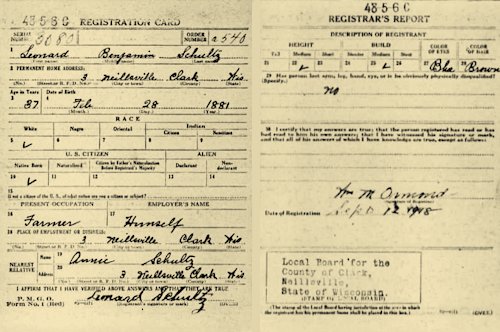 43-5-6 C REGISTRATION CARD
SERIAL NUMBER 3080 ORDER NUMBER a 540
1 Leonard Benjamin Schultz
2 PERMANENT HOME ADDRESS:
3 Neillsville Clark Wis
Age in Years Date of Birth
3 37 4 Feb 28 1881
(Month) (Day) (Year)
RACE
White Negro Oriental Indian
Citizen Noncitizen
5 ✓ 6 7 8 9
U. S. CITIZEN ALIEN
Native Born Naturalized Citizen by Father's Naturalization Before Registrant's Majority Declarant Non-declarant
10 ✓ 11 12 13 14
15 If not a citizen of the U. S., of what nation are you a citizen or subject?
PRESENT OCCUPATION EMPLOYER'S NAME
16 Farmer 17 Himself
18 PLACE OF EMPLOYMENT OR BUSINESS:
3 Neillsville Clark Wis
(No.) (Street or R. F. D. No.) (City or town) (County) (State)
NEAREST RELATIVE Name 19 Annie Schultz
Address 20 3 Neillsville Clark Wis
(No.) (Street or R. F. D. No.) (City or town) (County) (State)
I AFFIRM THAT I HAVE VERIFIED ABOVE ANSWERS AND THAT THEY ARE TRUE
P. M. G. O.
Form No. 1 (Red) Leonard Schultz
43-5-6 C
REGISTRAR'S REPORT
DESCRIPTION OF REGISTRANT
HEIGHT BUILD COLOR OF EYES COLOR OF HAIR
Tall Medium Short Slender Medium Stout
21 22 ✓ 23 24 25 ✓ 26 27 Blue 28 Brown
29 Has person lost arm, leg, hand, eye, or is he obviously physically disqualified?
(Specify.)
no
30 I certify that my answers are true; that the person registered has read or has
had read to him his own answers; that I have witnessed his signature or mark,
and that all of his answers of which I have knowledge are true, except as follows:
Wm M Ormond
(Signature of Registrar)
Date of Registration Sept 12 1918
Local Board for the
County of Clark,
Neillsville,
State of Wisconsin.
(STAMP OF LOCAL BOARD)
(The stamp of the Local Board having jurisdiction of the area in which
the registrant has his permanent home shall be placed in this box.)
(OVER)